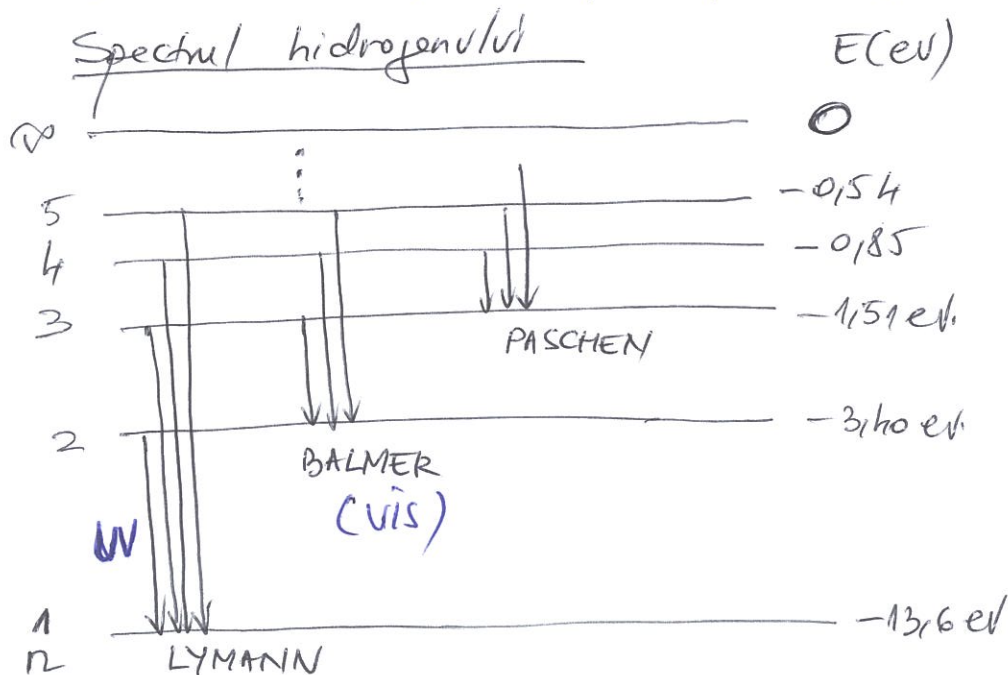 Spectrul hidrogenului E(ev)
∞ 0
5 -0,54
4 -0,85
3 -1,51 ev.
PASCHEN
2 -3,40 ev.
BALMER
(vis)
UV
1 -13,6 ev
n LYMANN